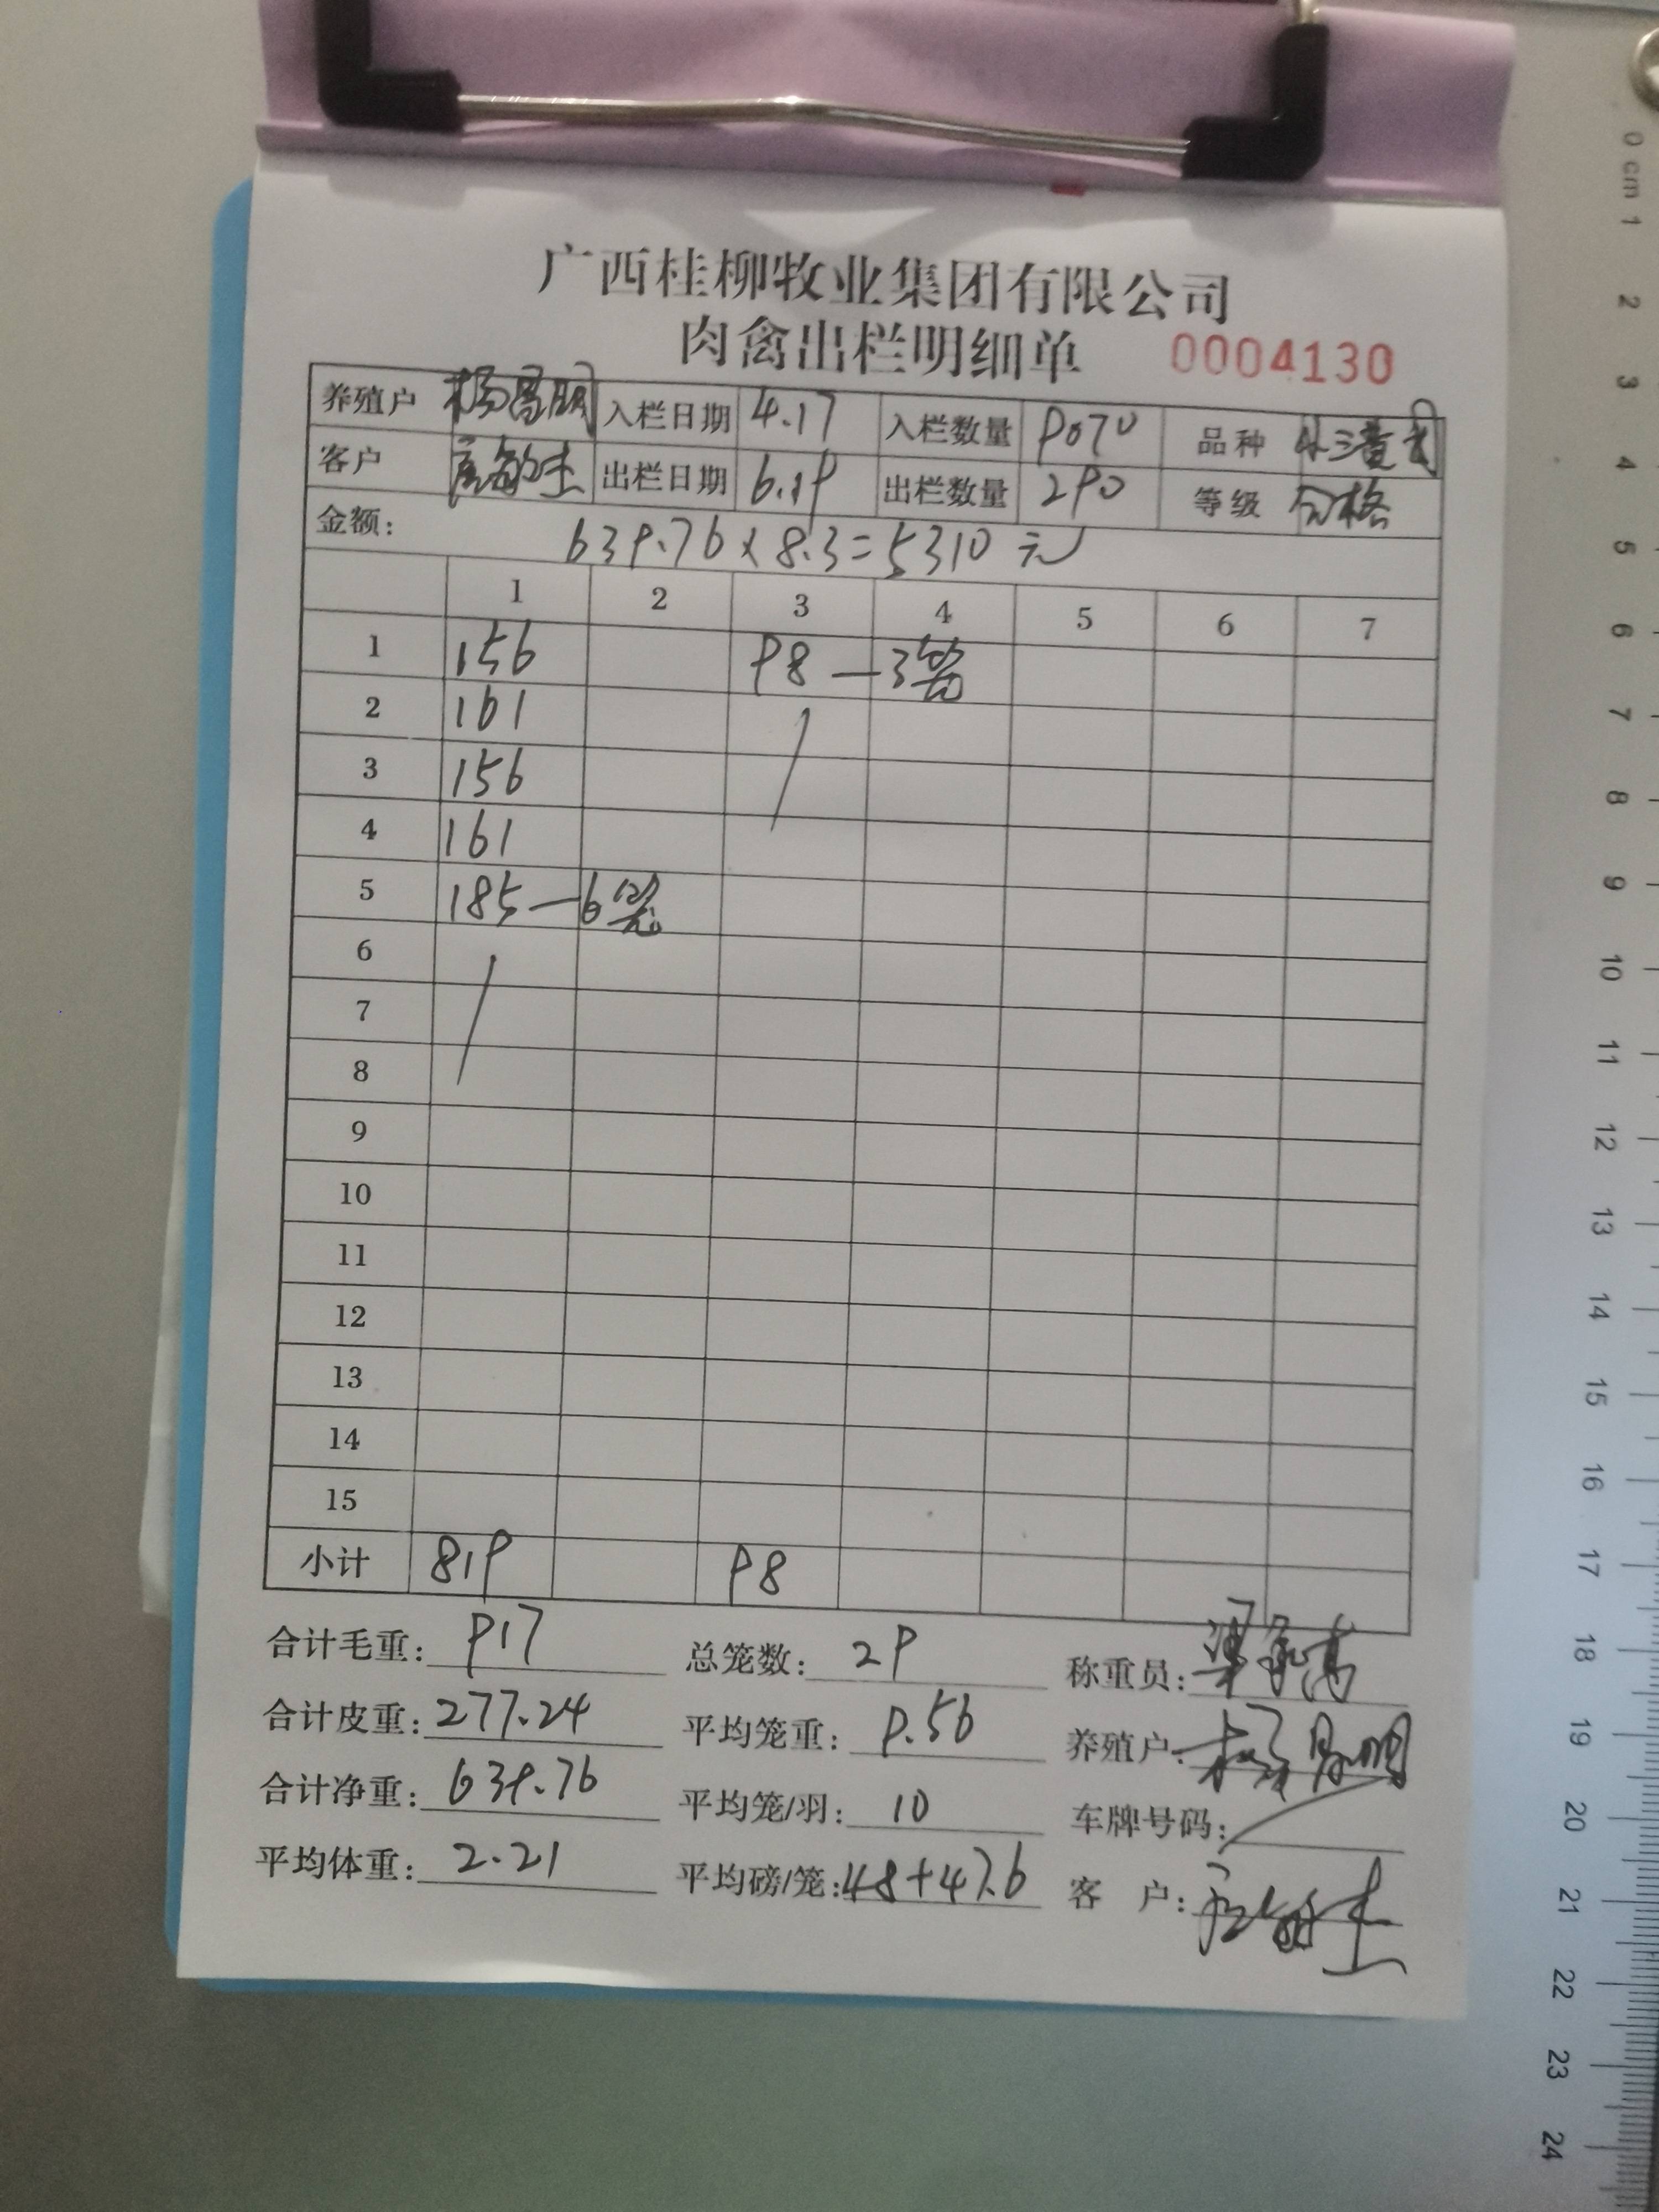 广西桂柳牧业集团有限公司
肉禽出栏明细单 0004130
养殖户 杨昌明 入栏日期 4.17 入栏数量 9070 品种
客户 出栏日期 6.19 出栏数量 290 等级 合格
金额: 639.76×8.3=5310元
1 2 3 4 5 6 7
1 156 98—3笼
2 161
3 156
4 161
5 185—6笼
6
7
8
9
10
11
12
13
14
15
小计 819 98
合计毛重: 917 总笼数: 29 称重员:
合计皮重: 277.24 平均笼重: 9.56 养殖户: 杨昌明
合计净重: 639.76 平均笼/羽: 10 车牌号码:
平均体重: 2.21 平均磅/笼: 48+47.6 客 户:
0 cm 1 2 3 4 5 6 7 8 9 10 11 12 13 14 15 16 17 18 19 20 21 22 23 24